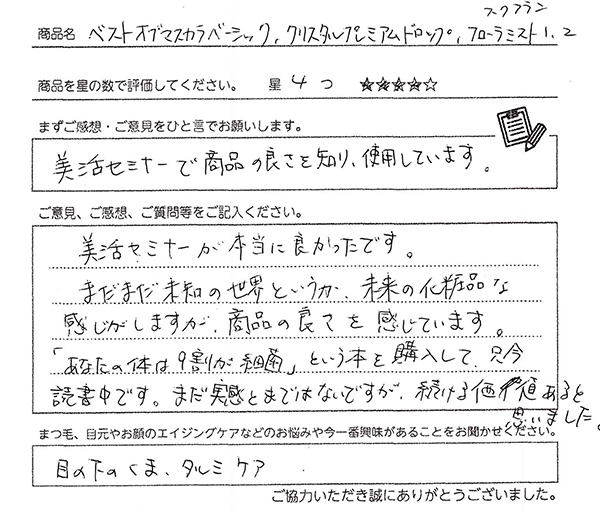 スクワラン
商品名 ベストオブマスカラベーシック, クリスタルプレミアムドロップ, フローラミスト1、2
商品を星の数で評価してください。 星 4 つ ☆☆☆☆☆
まずご感想・ご意見をひと言でお願いします。
美活セミナーで商品の良さを知り、使用しています。
ご意見、ご感想、ご質問等をご記入ください。
美活セミナーが本当に良かったです。
まだまだ未知の世界というか、未来の化粧品な
感じがしますが、商品の良さを感じています。
「あなたの体は9割が細菌」という本を購入して、只今
読書中です。まだ実感とまではないですが、続ける価値あると
思いました。
まつ毛、目元やお顔のエイジングケアなどのお悩みや今一番興味があることをお聞かせください。
目の下のくま、タルミケア
ご協力いただき誠にありがとうございました。